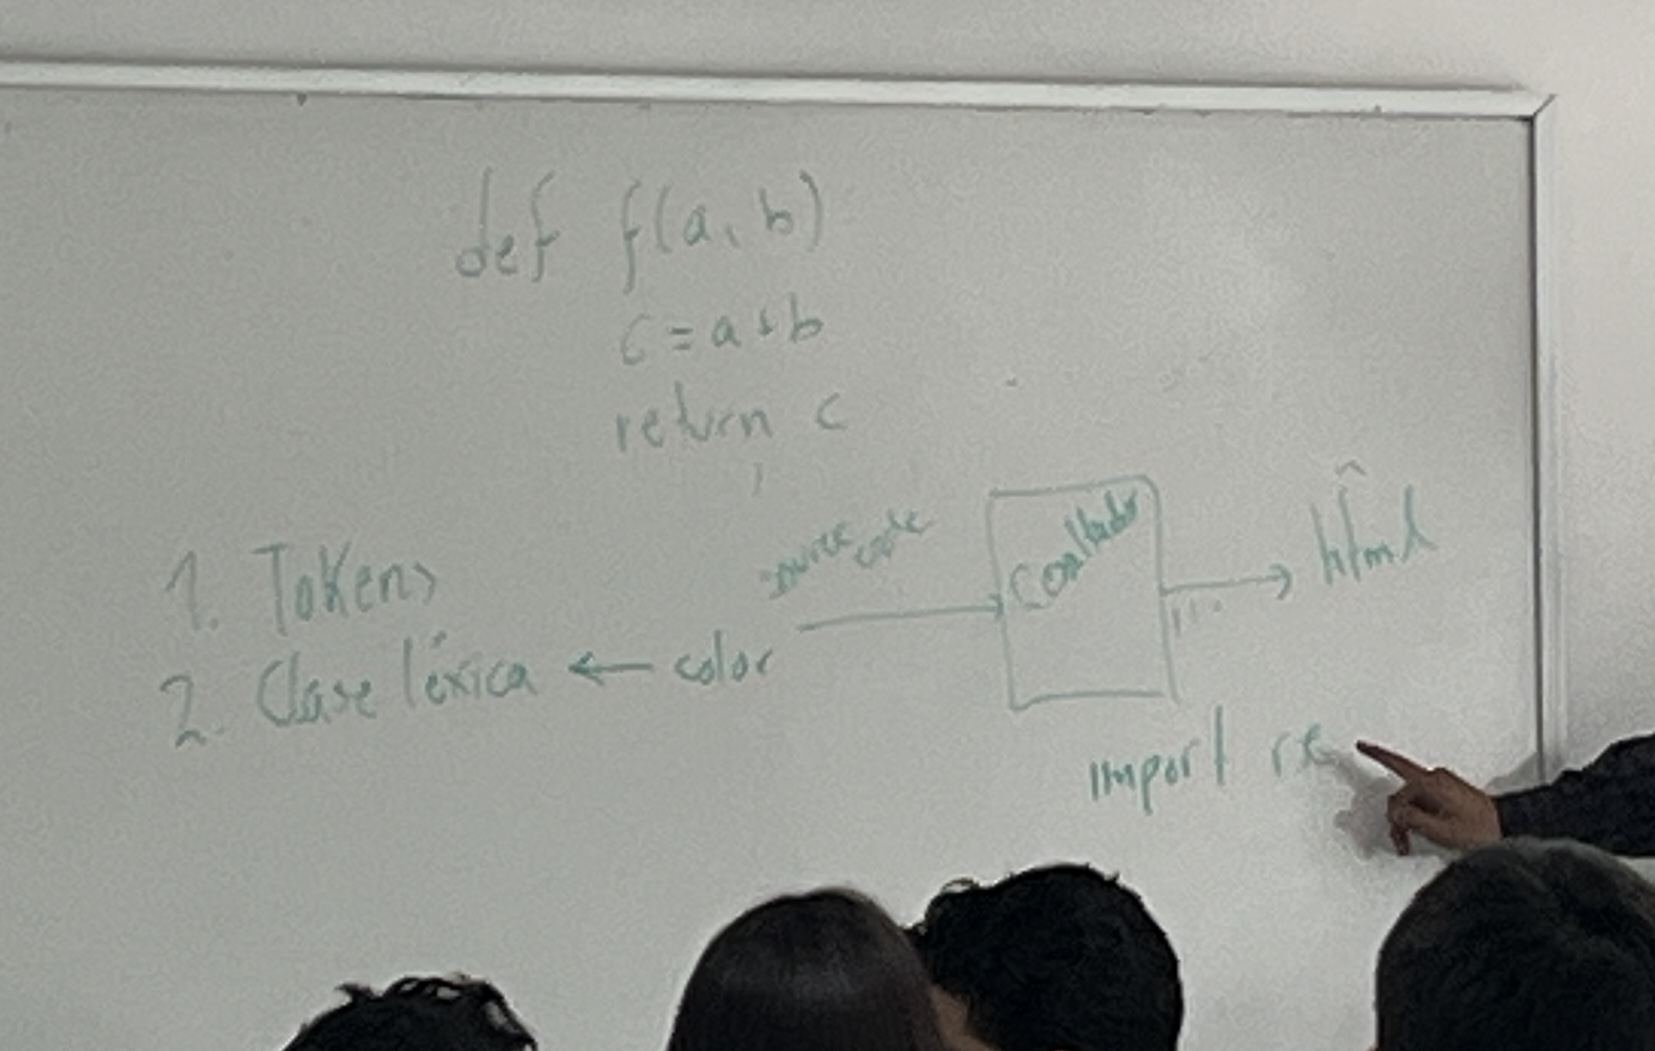 def f(a, b)
c = a + b
return c
1. Tokens
2. Clase léxica ← color
source code
html
import re